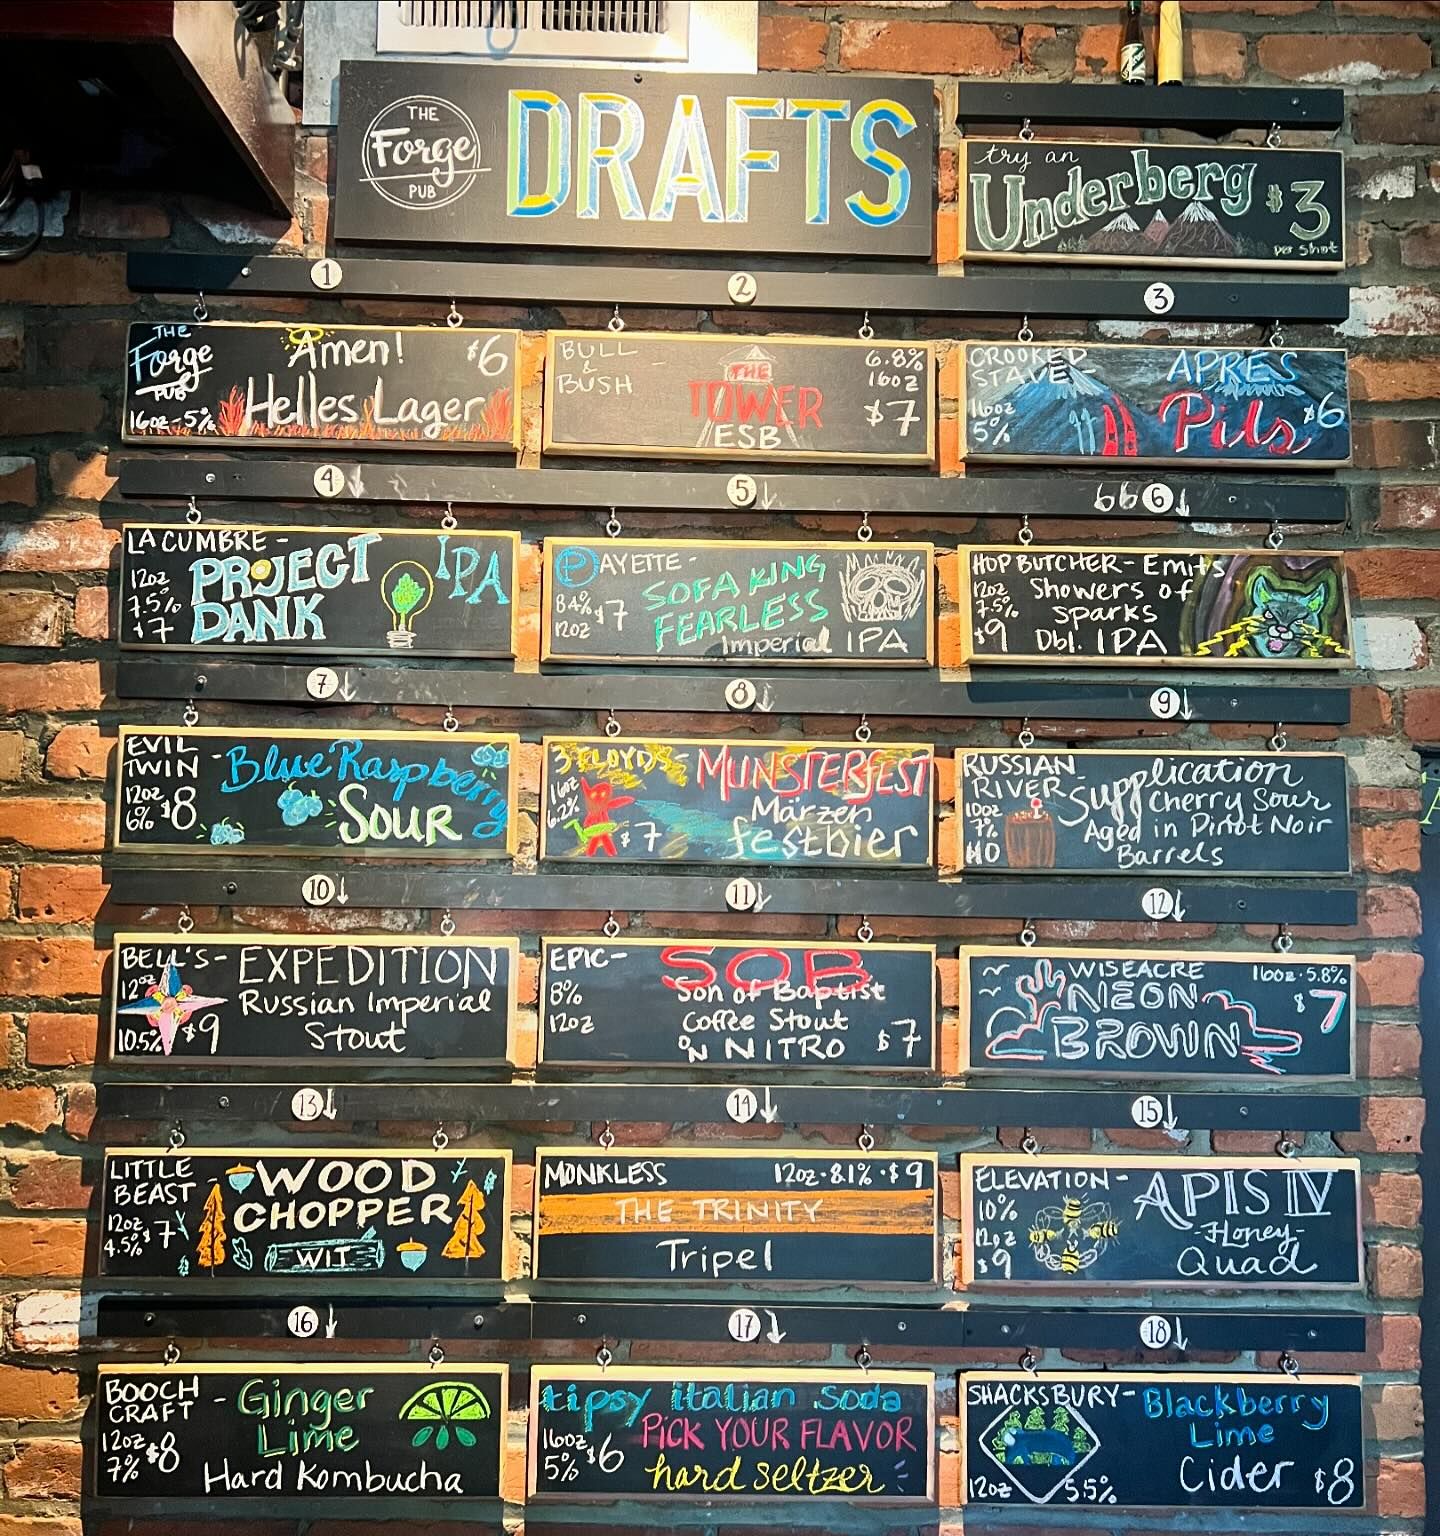 THE
Forge
PUB
DRAFTS
try an
Underberg $3
per shot
1
2
3
THE
Forge
PUB
16oz-5%
Amen!
$6
Helles Lager
BULL
&
BUSH
THE
TOWER
ESB
6.8%
16oz
$7
CROOKED
STAVE-
16oz
5%
APRÉS
Pils $6
4
5
66
6
LA CUMBRE-
12oz
7.5%
$7
PROJECT
DANK
IPA
PAYETTE-
8.4%
12oz
$7
SOFA KING
FEARLESS
Imperial IPA
HOP BUTCHER- Emits
12oz
7.5%
$9
Showers of
sparks
Dbl. IPA
7
8
9
EVIL
TWIN -
12oz
6% $8
Blue Raspberry
SOUR
3 FLOYDS-
16oz
6.2%
$7
MUNSTERFEST
Märzen
festbier
RUSSIAN
RIVER-
10oz
7%
$10
Supplication
Cherry Sour
Aged in Pinot Noir
Barrels
10
11
12
BELL'S-
12oz
10.5% $9
EXPEDITION
Russian Imperial
Stout
EPIC-
8%
12oz
SOB
Son of Baptist
Coffee Stout
ON NITRO $7
WISEACRE
NEON
BROWN
16oz·5.8%
$7
13
14
15
LITTLE
BEAST-
12oz
4.5% $7
WOOD
CHOPPER
WIT
MONKLESS 12oz·8.1%·$9
THE TRINITY
Tripel
ELEVATION-
10%
12oz
$9
APIS IV
-Honey-
Quad
16
17
18
BOOCH
CRAFT -
12oz
7% $8
Ginger
Lime
Hard Kombucha
tipsy italian soda
16oz
5% $6
PiCK YOUR FLAVOR
hard seltzer
SHACKSBURY-
12oz 5.5%
Blackberry
Lime
Cider $8